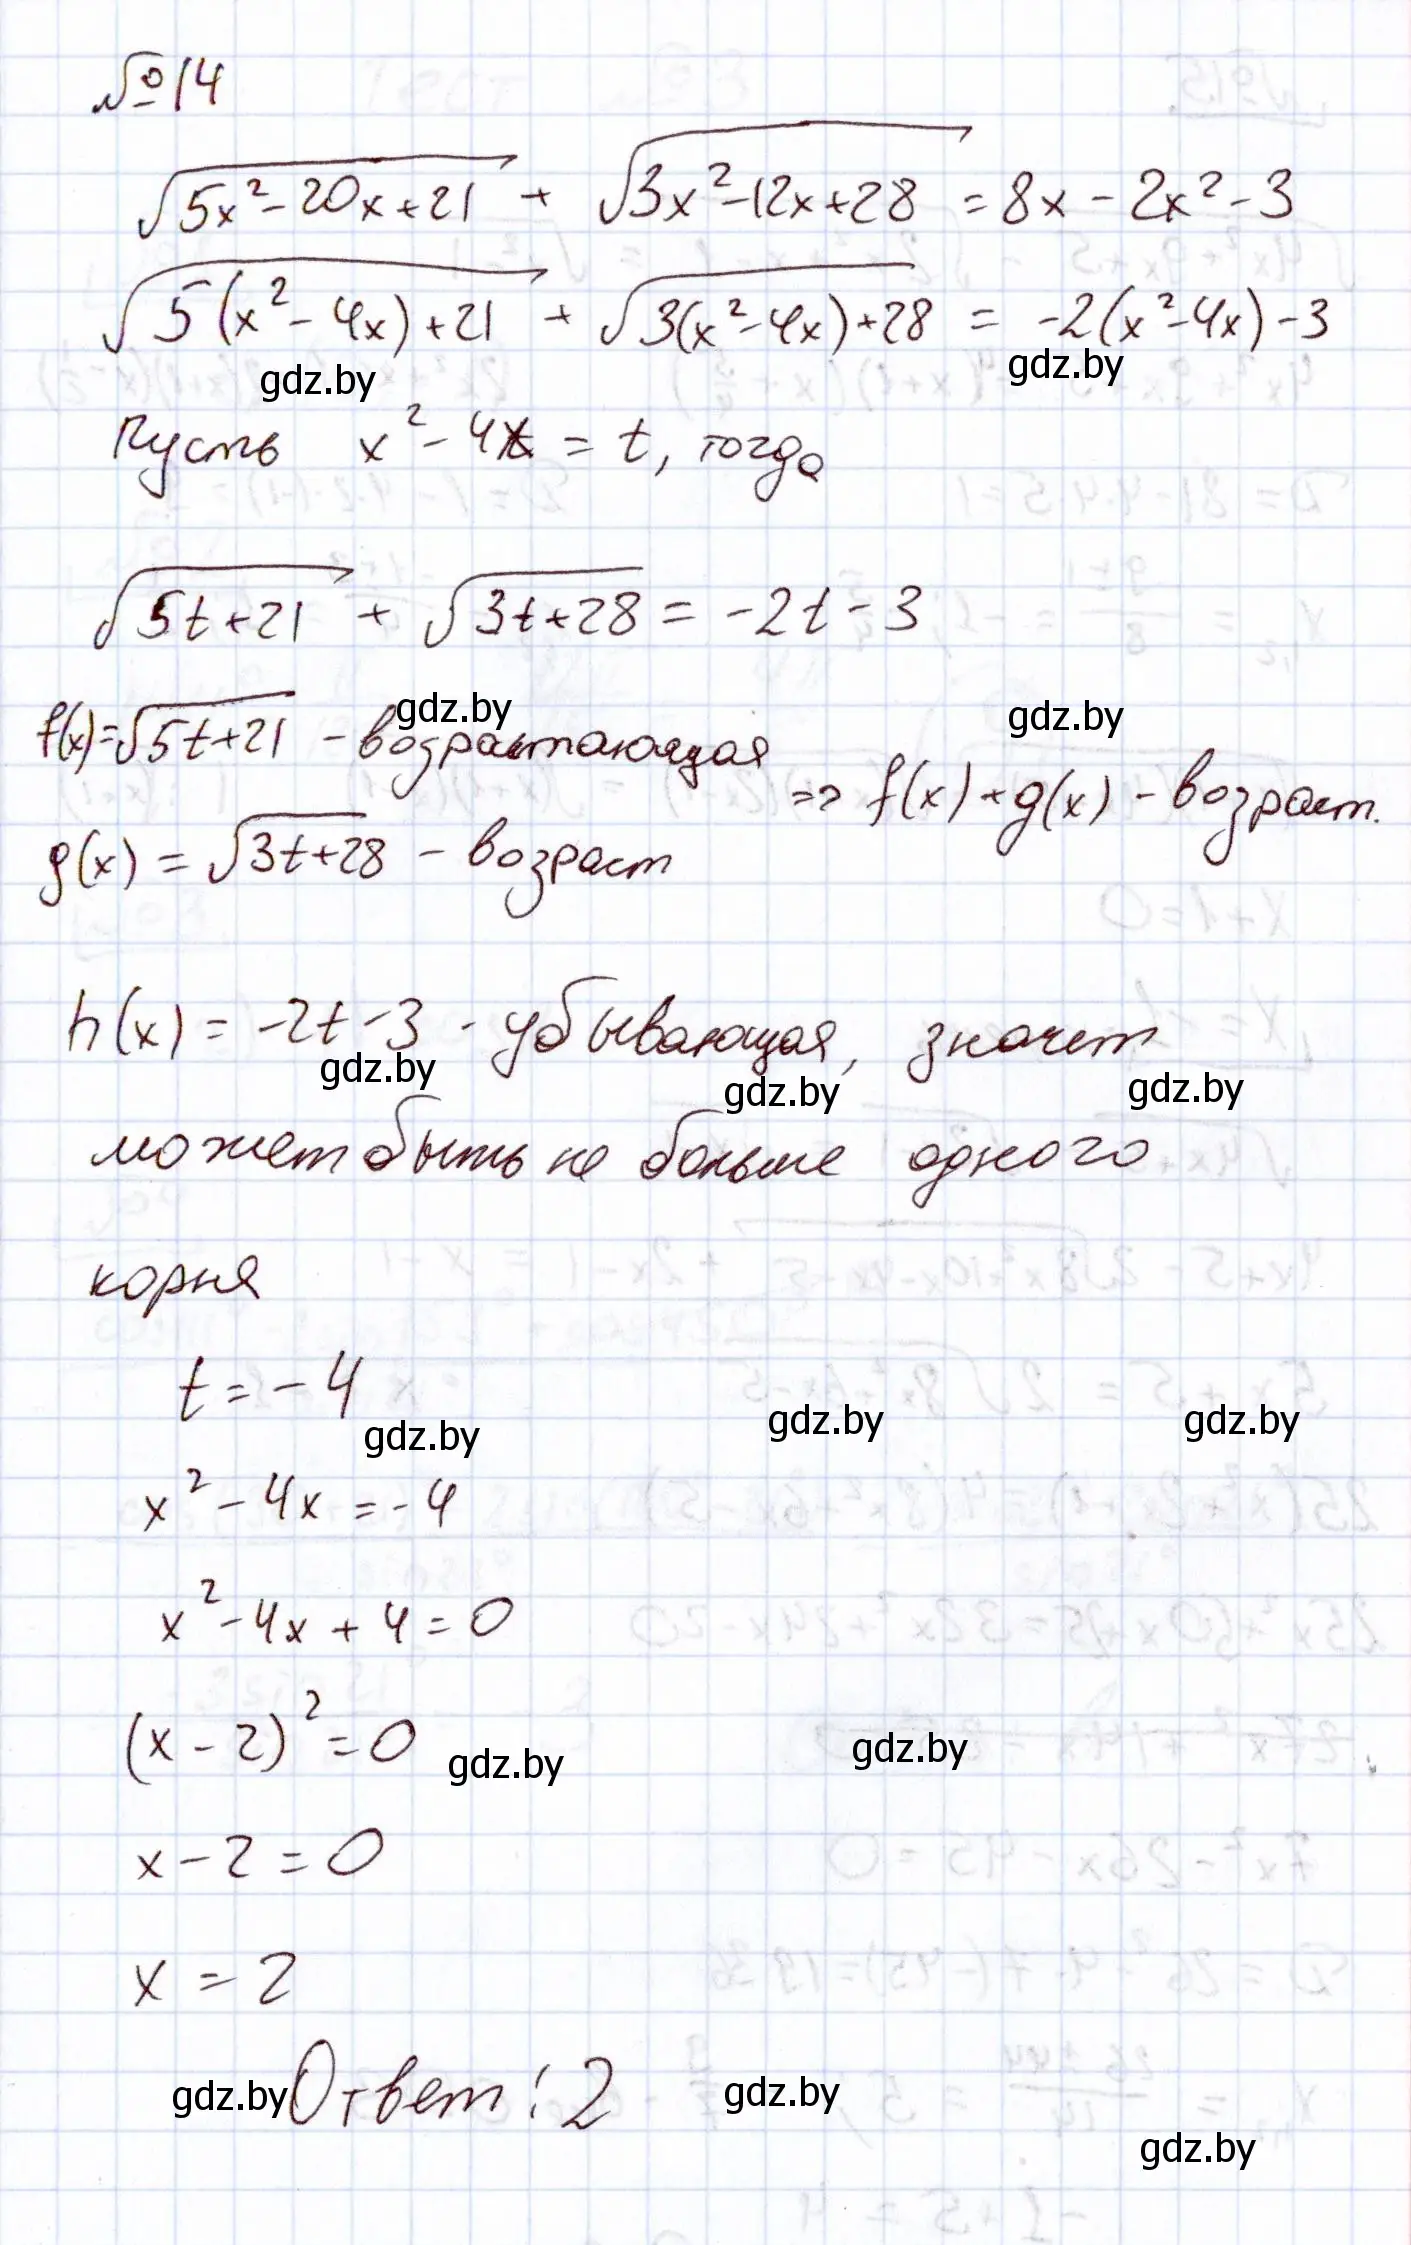 №14
√(5x²-20x+21) + √(3x²-12x+28) = 8x - 2x² - 3
√(5(x²-4x)+21) + √(3(x²-4x)+28) = -2(x²-4x)-3
gdz.by gdz.by
Пусть x²-4x = t, тогда
√(5t+21) + √(3t+28) = -2t-3
gdz.by gdz.by
f(x)=√(5t+21) - возрастающая
=> f(x)+g(x) - возраст.
g(x) = √(3t+28) - возраст
h(x) = -2t-3 - убывающая, значит
gdz.by gdz.by gdz.by
может быть не больше одного
корня
t = -4
gdz.by gdz.by gdz.by
x²-4x = -4
x²-4x+4=0
(x-2)²=0
gdz.by gdz.by
x-2=0
x = 2
gdz.by Ответ: 2 gdz.by
gdz.by